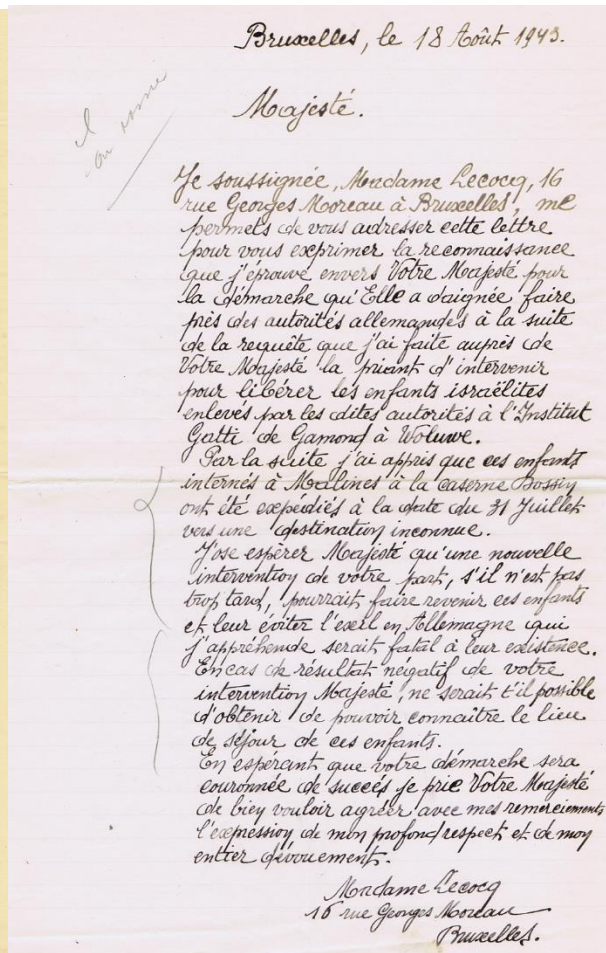 Bruxelles, le 18 Août 1943.
Majesté.
Je soussignée, Madame Lecocq, 16
rue Georges Moreau à Bruxelles, me
permets de vous adresser cette lettre
pour vous exprimer la reconnaissance
que j'éprouve envers Votre Majesté pour
la démarche qu'Elle a daignée faire
près des autorités allemandes à la suite
de la requête que j'ai faite auprès de
Votre Majesté la priant d'intervenir
pour libérer les enfants israëlites
enlevés par les dites autorités à l'Institut
Gatti de Gamond à Woluwe.
Par la suite j'ai appris que ces enfants
internés à Malines à la caserne Dossin
ont été expédiés à la date du 31 Juillet
vers une destination inconnue.
J'ose espérer Majesté qu'une nouvelle
intervention de votre part, s'il n'est pas
trop tard, pourrait faire revenir ces enfants
et leur éviter l'exil en Allemagne qui
j'appréhende serait fatal à leur existence.
En cas de résultat négatif de votre
intervention Majesté, ne serait t'il possible
d'obtenir de pouvoir connaître le lieu
de séjour de ces enfants.
En espérant que votre démarche sera
couronnée de succés je prie Votre Majesté
de bien vouloir agréer avec mes remerciements
l'expression de mon profond respect et de mon
entier dévouement.
Madame Lecocq
16 rue Georges Moreau
Bruxelles.